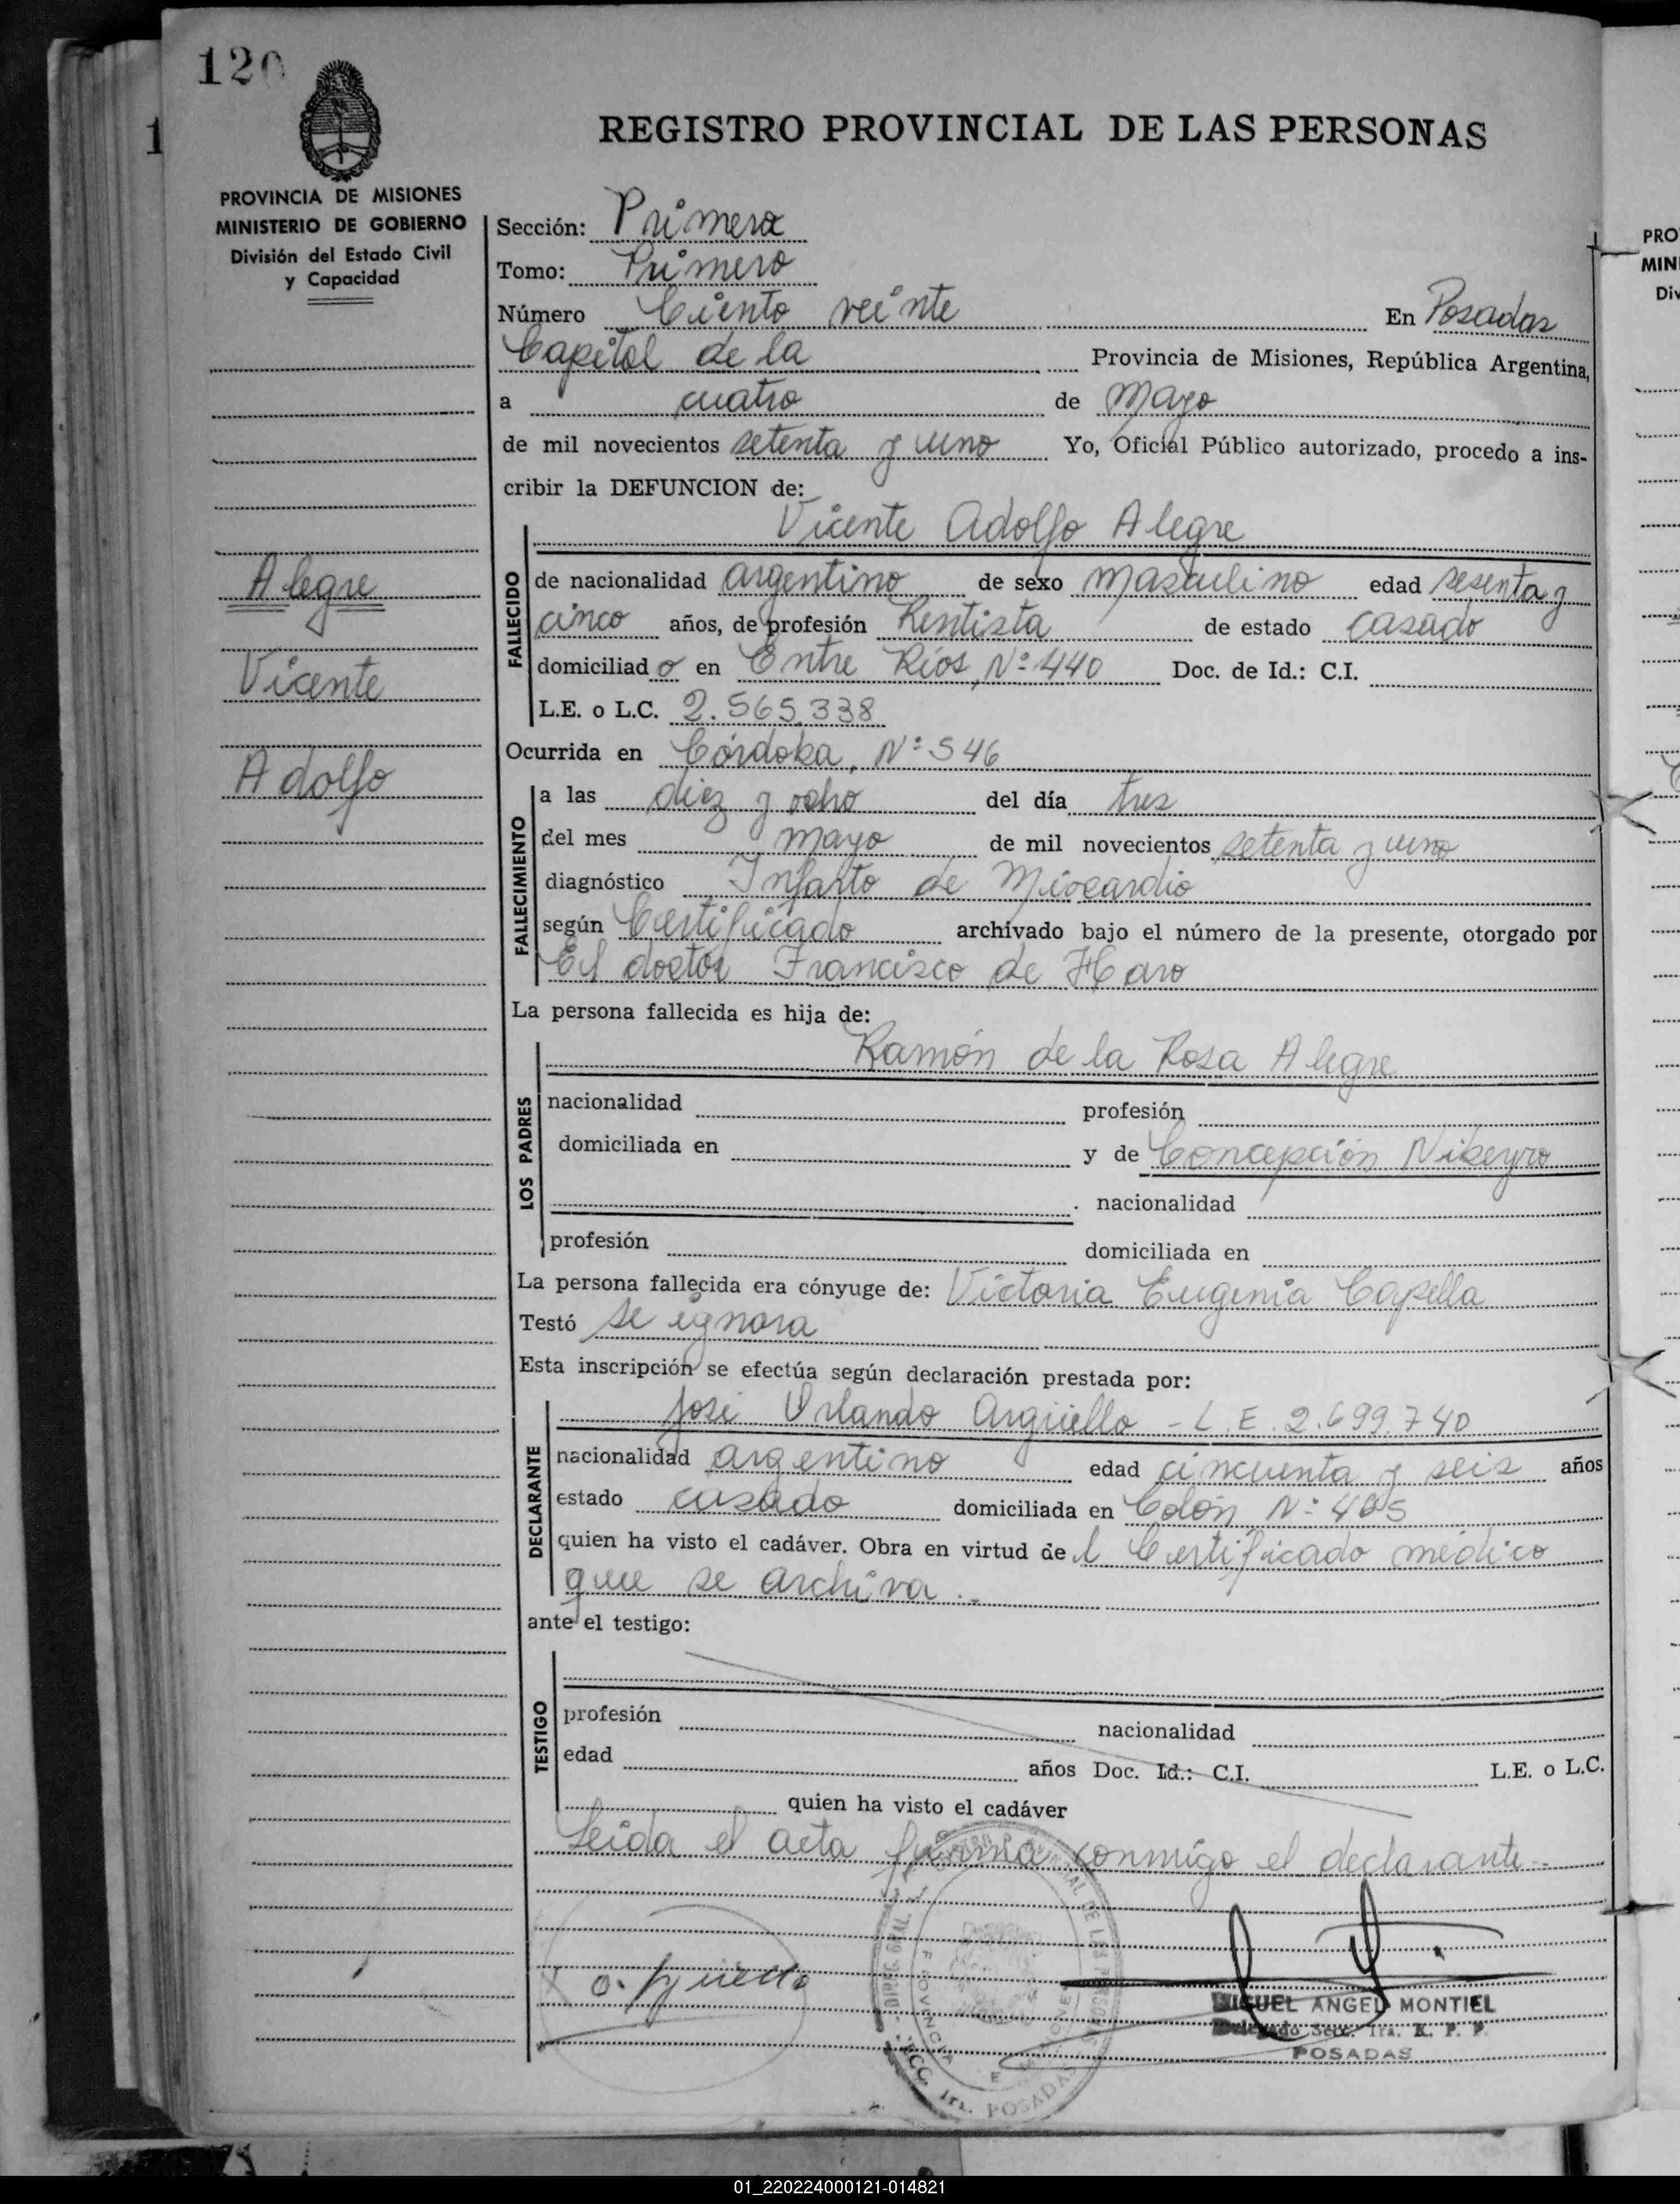 120
1
REGISTRO PROVINCIAL DE LAS PERSONAS
PROVINCIA DE MISIONES
MINISTERIO DE GOBIERNO
División del Estado Civil
y Capacidad
Alegre
Vicente
Adolfo
Sección: Primera
Tomo: Primero
Número Ciento veinte En Posadas
Capital de la Provincia de Misiones, República Argentina,
a cuatro de Mayo
de mil novecientos setenta y uno Yo, Oficial Público autorizado, procedo a ins-
cribir la DEFUNCION de:
Vicente Adolfo Alegre
FALLECIDO
de nacionalidad argentino de sexo masculino edad sesenta y
cinco años, de profesión Rentista de estado casado
domiciliado en Entre Ríos, Nº 440 Doc. de Id.: C.I.
L.E. o L.C. 2.565.338
Ocurrida en Córdoba, Nº 546
FALLECIMIENTO
a las diez y ocho del día tres
del mes mayo de mil novecientos setenta y uno
diagnóstico Infarto de Miocardio
según Certificado archivado bajo el número de la presente, otorgado por
El doctor Francisco de Haro
La persona fallecida es hija de:
LOS PADRES
Ramón de la Rosa Alegre
nacionalidad profesión
domiciliada en y de Concepción Nikeyro
nacionalidad
profesión domiciliada en
La persona fallecida era cónyuge de: Victoria Eugenia Capella
Testó se ignora
Esta inscripción se efectúa según declaración prestada por:
DECLARANTE
José Orlando Argüello - L.E. 2.699.740
nacionalidad argentino edad cincuenta y seis años
estado casado domiciliada en Colón Nº 405
quien ha visto el cadáver. Obra en virtud del Certificado médico
que se archiva.-
ante el testigo:
TESTIGO
profesión nacionalidad
edad años Doc. Id.: C.I. L.E. o L.C.
quien ha visto el cadáver
Leída el acta firma conmigo el declarante.-
MIGUEL ANGEL MONTIEL
Delegado Secc. 1ra. R. P. P.
POSADAS
SECC. 1ra. POSADAS
PRO
MIN
Div
01_220224000121-014821